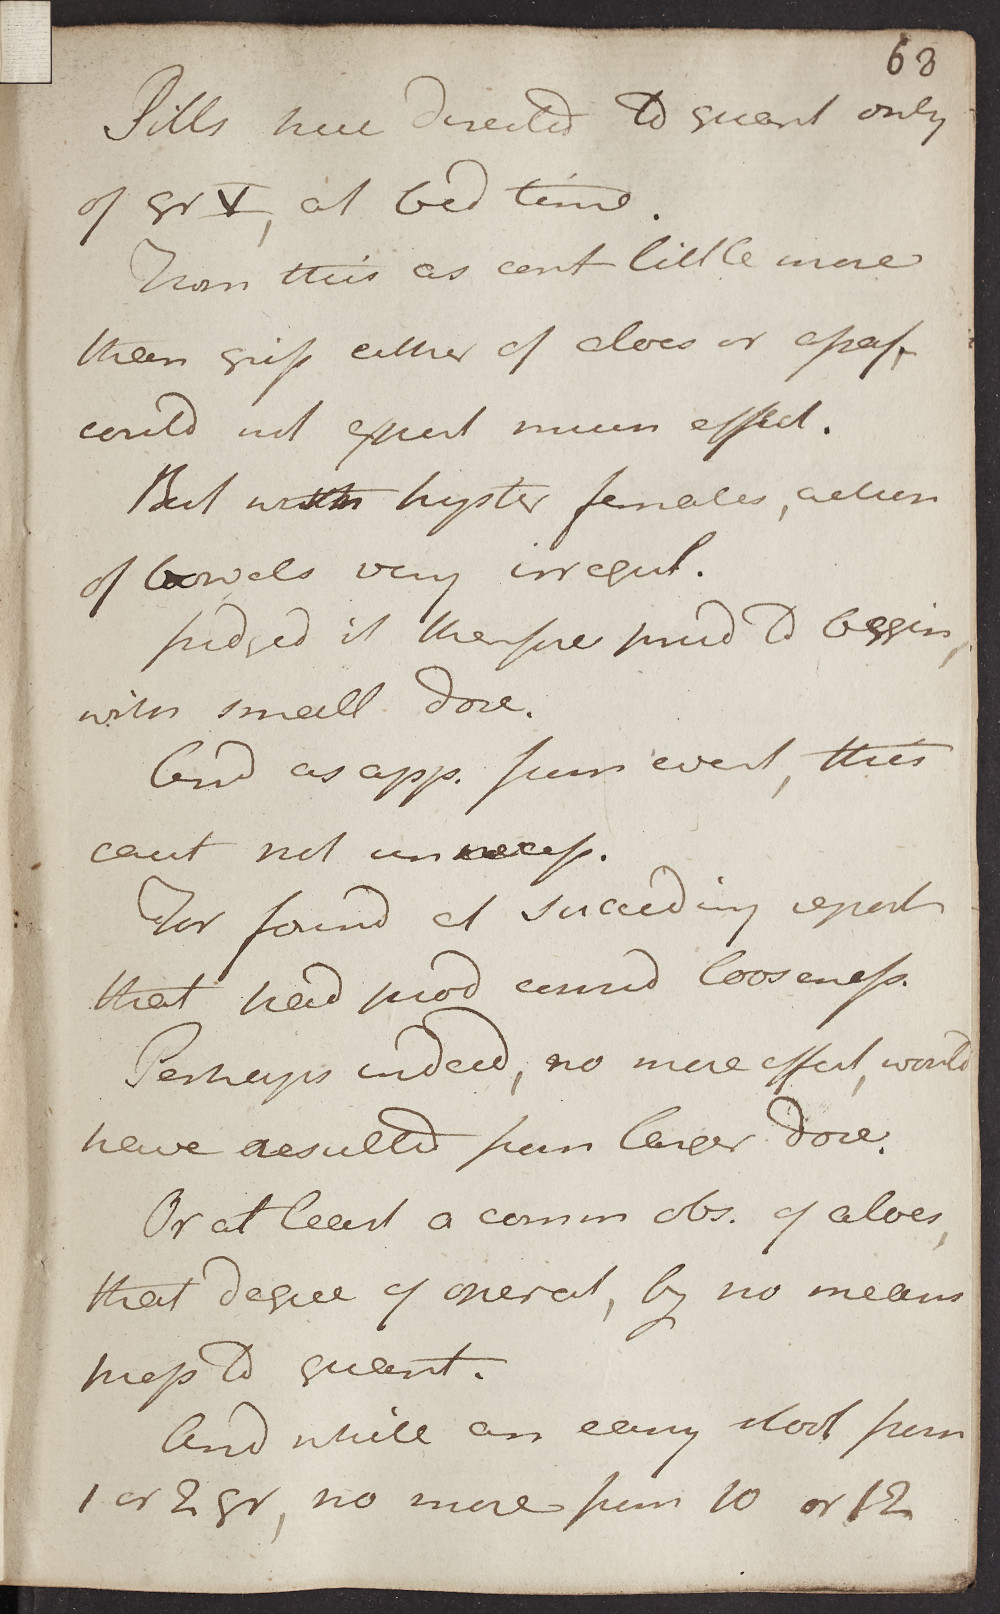 68
Pills here directed to quant only
of gr V, at bed time.
From this as cont little more
than gr ifs either of aloes or asaf,
could not expect much effect.
But with hyster females, action
of bowels very irregul.
judged it therefore prud to begin,
with small dose.
And as app. from event, this
caut not unnecess.
For found at succeeding report
that had prod consid looseness.
Perhaps indeed, no more effect, would
have resulted from larger dose.
Or at least a comm obs. of aloes,
that degree of operat, by no means
props to quant.
And while an easy stool from
1 or 2 gr, no more from 10 or 12